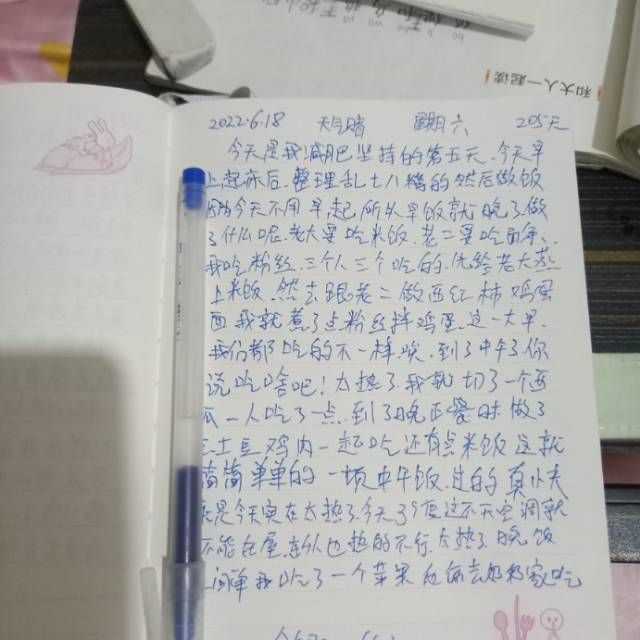 和大人一起读
2022.6.18 天气晴 星期六 205天
今天是我减肥坚持的第五天.今天早
上起床后.整理乱七八糟的然后做饭
今天不用早起.所以早饭就晚了做
了什么呢.老大要吃米饭.老二要吃面条.
我吃粉丝.三个人三个吃的.先给老大蒸
上米饭.然后跟老二做西红柿鸡蛋
面我就煮了点粉丝拌鸡蛋这一大早.
我们都吃的不一样唉.到了中午了你
说吃啥吧!太热了.我就切了一个西
瓜一人吃了一点.到了晚正餐时做了
土豆鸡肉一起吃还有点米饭这就
简简单单的一顿中午饭.过的真快
是今天实在太热了.今天了
不能在屋 也热的不行.太热了.晚饭
简单我吃了一个苹果 他俩去奶奶家吃